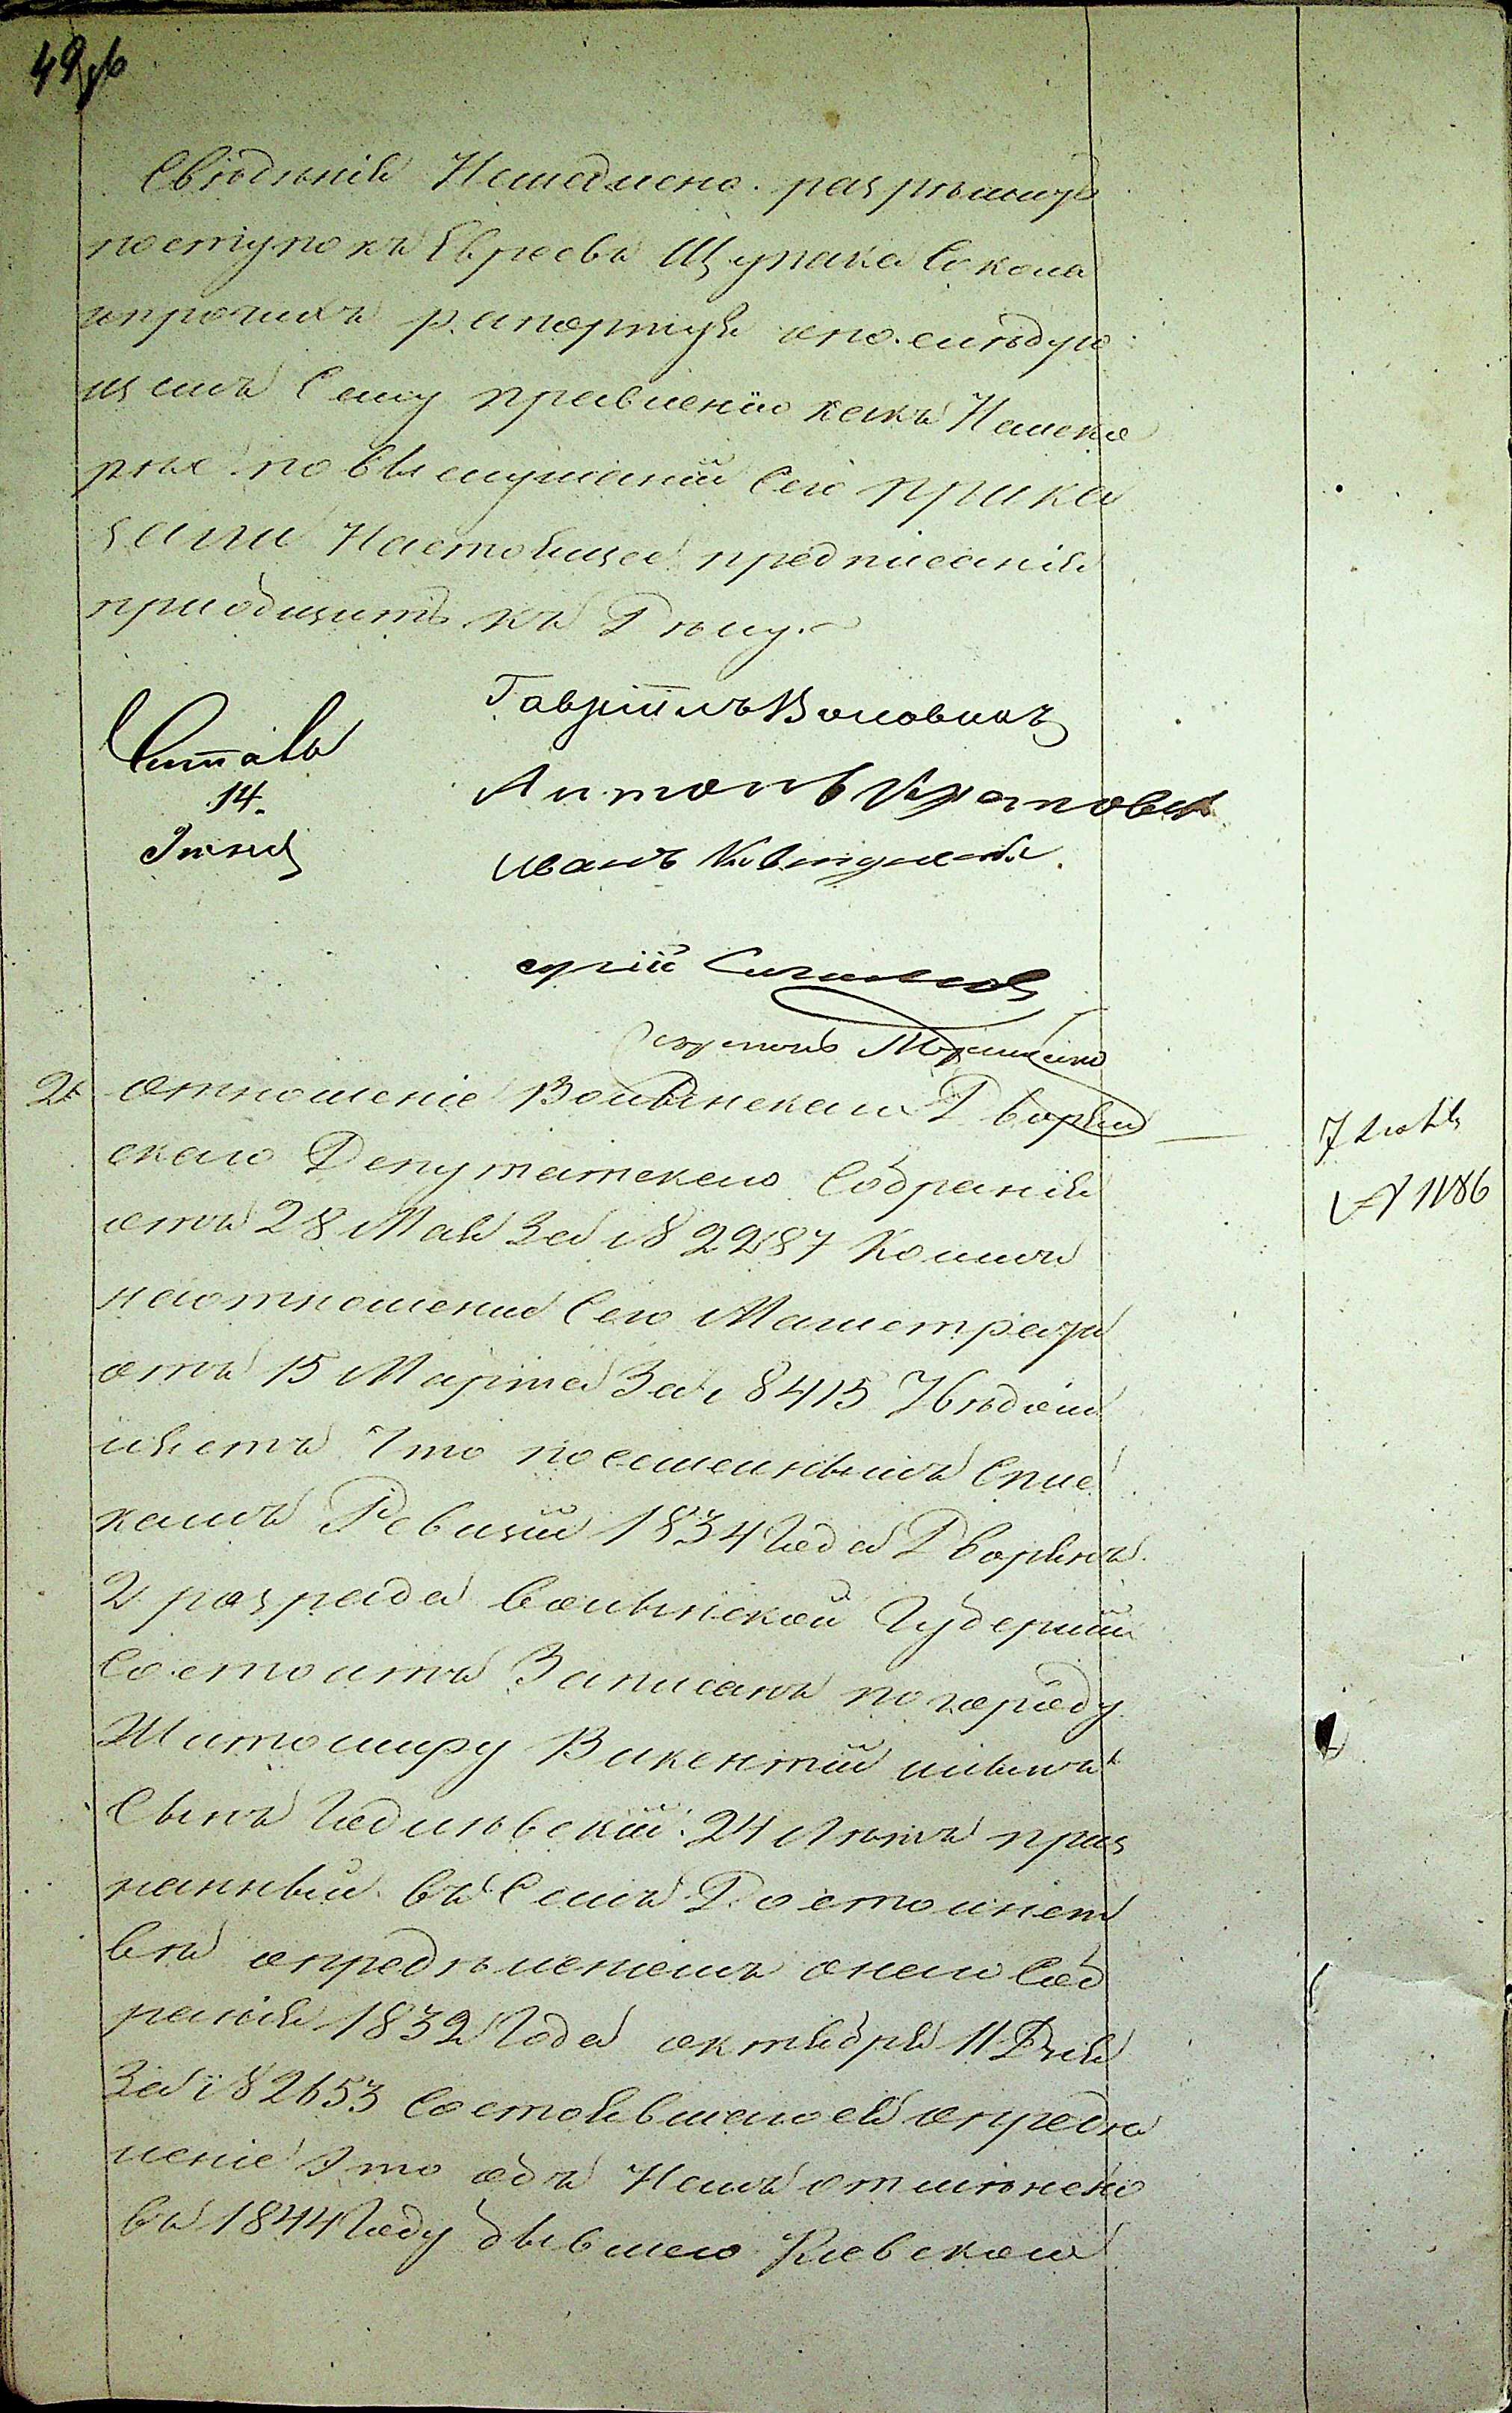 49об
Свѣдѣній Немедлено разрѣшить
поступокъ Евреевъ Щупака Сокола
ипрочихъ рапортуя опослѣдую
щемъ Сему правленію какъ
по выслушаніи Сего прика
зали Настоящее предписанія
приобщить къ Дѣлу.
Гавріилъ
Читалъ
14.
Іюня
Антонъ
Иванъ
2. отношеніе Волынскаго Дворян
скаго Депутатскаго Собранія
отъ 28 Мая За № 2287 Коимъ
наотношение Сего Магистрата
отъ 15 Марта За № 8415 Увѣдом
ляетъ Что посемейнымъ Спис
камъ Ревизіи 1834 Года Дворянъ
2 разряда Волынской Губерніи
Состоитъ Записанъ погороду
Житомиру Викентій
Сынъ 24 Лѣтъ приз
нанный въ Семъ Достоинст
вѣ опредѣленіемъ онаго Соб
ранія 1832 Года октября 11 Дня
За № 2653 Состоявшагося опредѣ
леніе Это объ Немъ отмѣнено
въ 1844 Году бывшею Киевскою
7 Июля
№ 1186